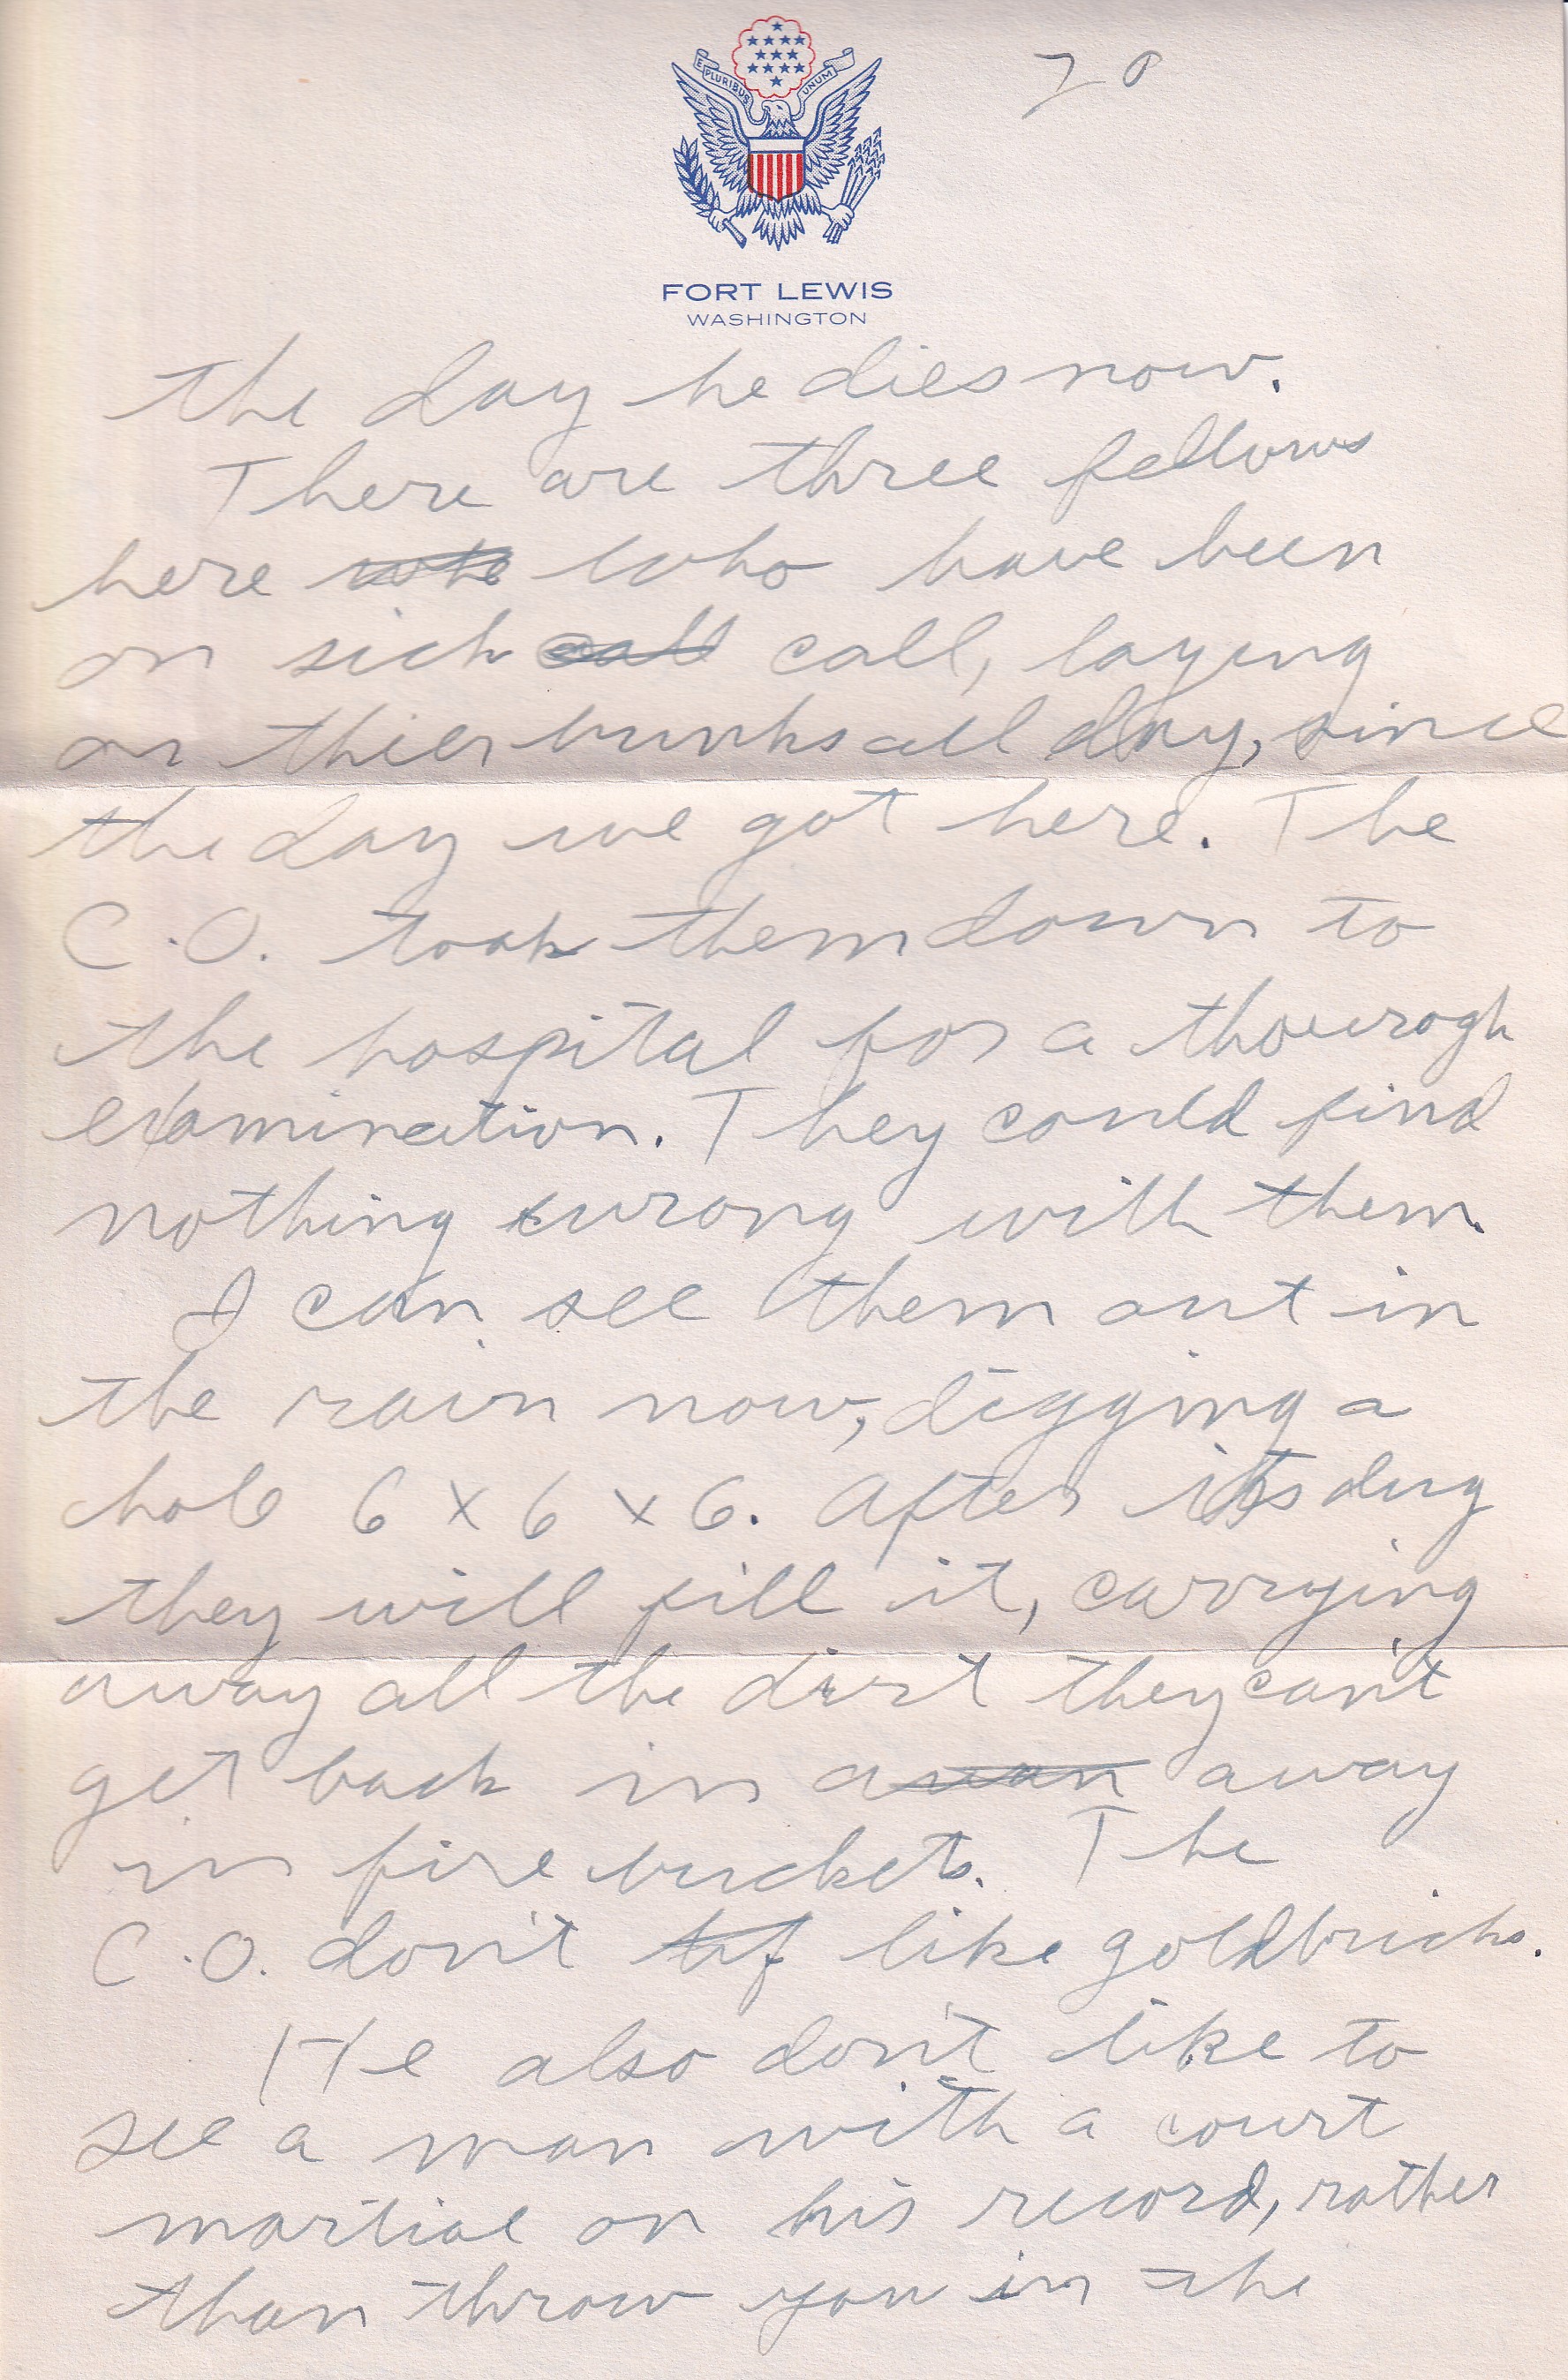 E PLURIBUS UNUM
20
FORT LEWIS
WASHINGTON
the day he dies now.
There are three fellows
here who have been
on sick call call, laying
on thier bunks all day, since
the day we got here. The
C.O. took them down to
the hospital for a thourogh
examination. They could find
nothing wrong with them.
I can see them out in
the rain now, digging a
hole 6 x 6 x 6. After its dug
they will fill it, carrying
away all the dirt they can't
get back in away
in fire buckets. The
C.O. don't like goldbricks.
He also don't like to
see a man with a court
martial on his record, rather
than throw you in the